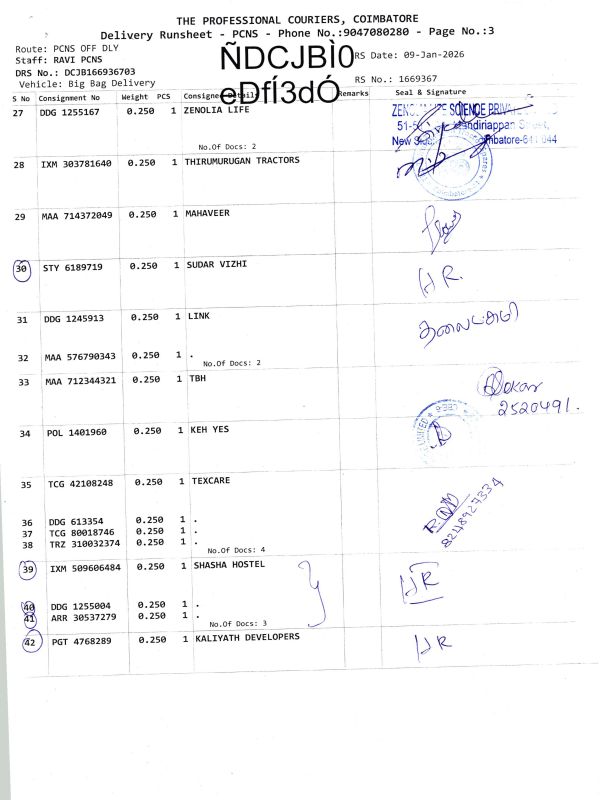 THE PROFESSIONAL COURIERS, COIMBATORE
Delivery Runsheet - PCNS - Phone No.:9047080280 - Page No.:3
Route: PCNS OFF DLY
Staff: RAVI PCNS
ÑDCJBÌ0
RS Date: 09-Jan-2026
DRS No.: DCJB166936703
Vehicle: Big Bag Delivery
eDfÍ3dÓ
RS No.: 1669367
S No Consignment No Weight PCS Consignee Details Remarks Seal & Signature
27 DDG 1255167 0.250 1 ZENOLIA LIFE
SCIENCE
No.Of Docs: 2
28 IXM 303781640 0.250 1 THIRUMURUGAN TRACTORS
29 MAA 714372049 0.250 1 MAHAVEER
30 STY 6189719 0.250 1 SUDAR VIZHI
HR.
31 DDG 1245913 0.250 1 LINK
32 MAA 576790343 0.250 1 .
No.Of Docs: 2
33 MAA 712344321 0.250 1 TBH
2520491.
34 POL 1401960 0.250 1 KEH YES
35 TCG 42108248 0.250 1 TEXCARE
8248927334
36 DDG 613354 0.250 1 .
37 TCG 80018746 0.250 1 .
38 TRZ 310032374 0.250 1 .
No.Of Docs: 4
39 IXM 509606484 0.250 1 SHASHA HOSTEL
HR
40 DDG 1255004 0.250 1 .
41 ARR 30537279 0.250 1 .
No.Of Docs: 3
42 PGT 4768289 0.250 1 KALIYATH DEVELOPERS
HR